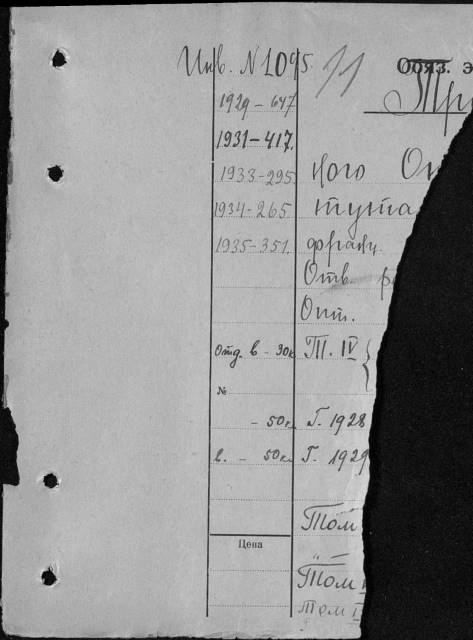 Инв. N 1095. 11 Обяз. э
Тр
1929 - 647
1931 - 417.
1933 - 295. ного Оп
1934 - 265 тута
1935 - 351. франц.
Отв. р
Опт.
Отд. в - 30к Т. IV
№
- 50к. Г. 1928
в. - 50к. Г. 1929
Том
Цена
Том
Том